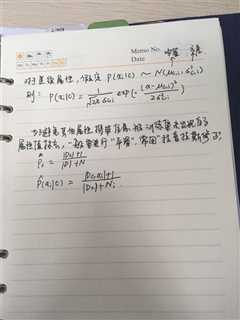 Memo No.
Date
对连续属性,假定 P(xi|c) ~ N(μc,i, σ²c,i)
则: P(xi|c) = 1/(√2π σc,i) exp(-(xi-μc,i)²/2σ²c,i)
为避免其他属性携带信息被训练集未出现的
属性值抹去,一般要进行"平滑",常用"拉普拉斯修正"
P̂c = |Dc|+1 / |D|+N
P̂(xi|c) = |Dc,xi|+1 / |Dc|+Ni